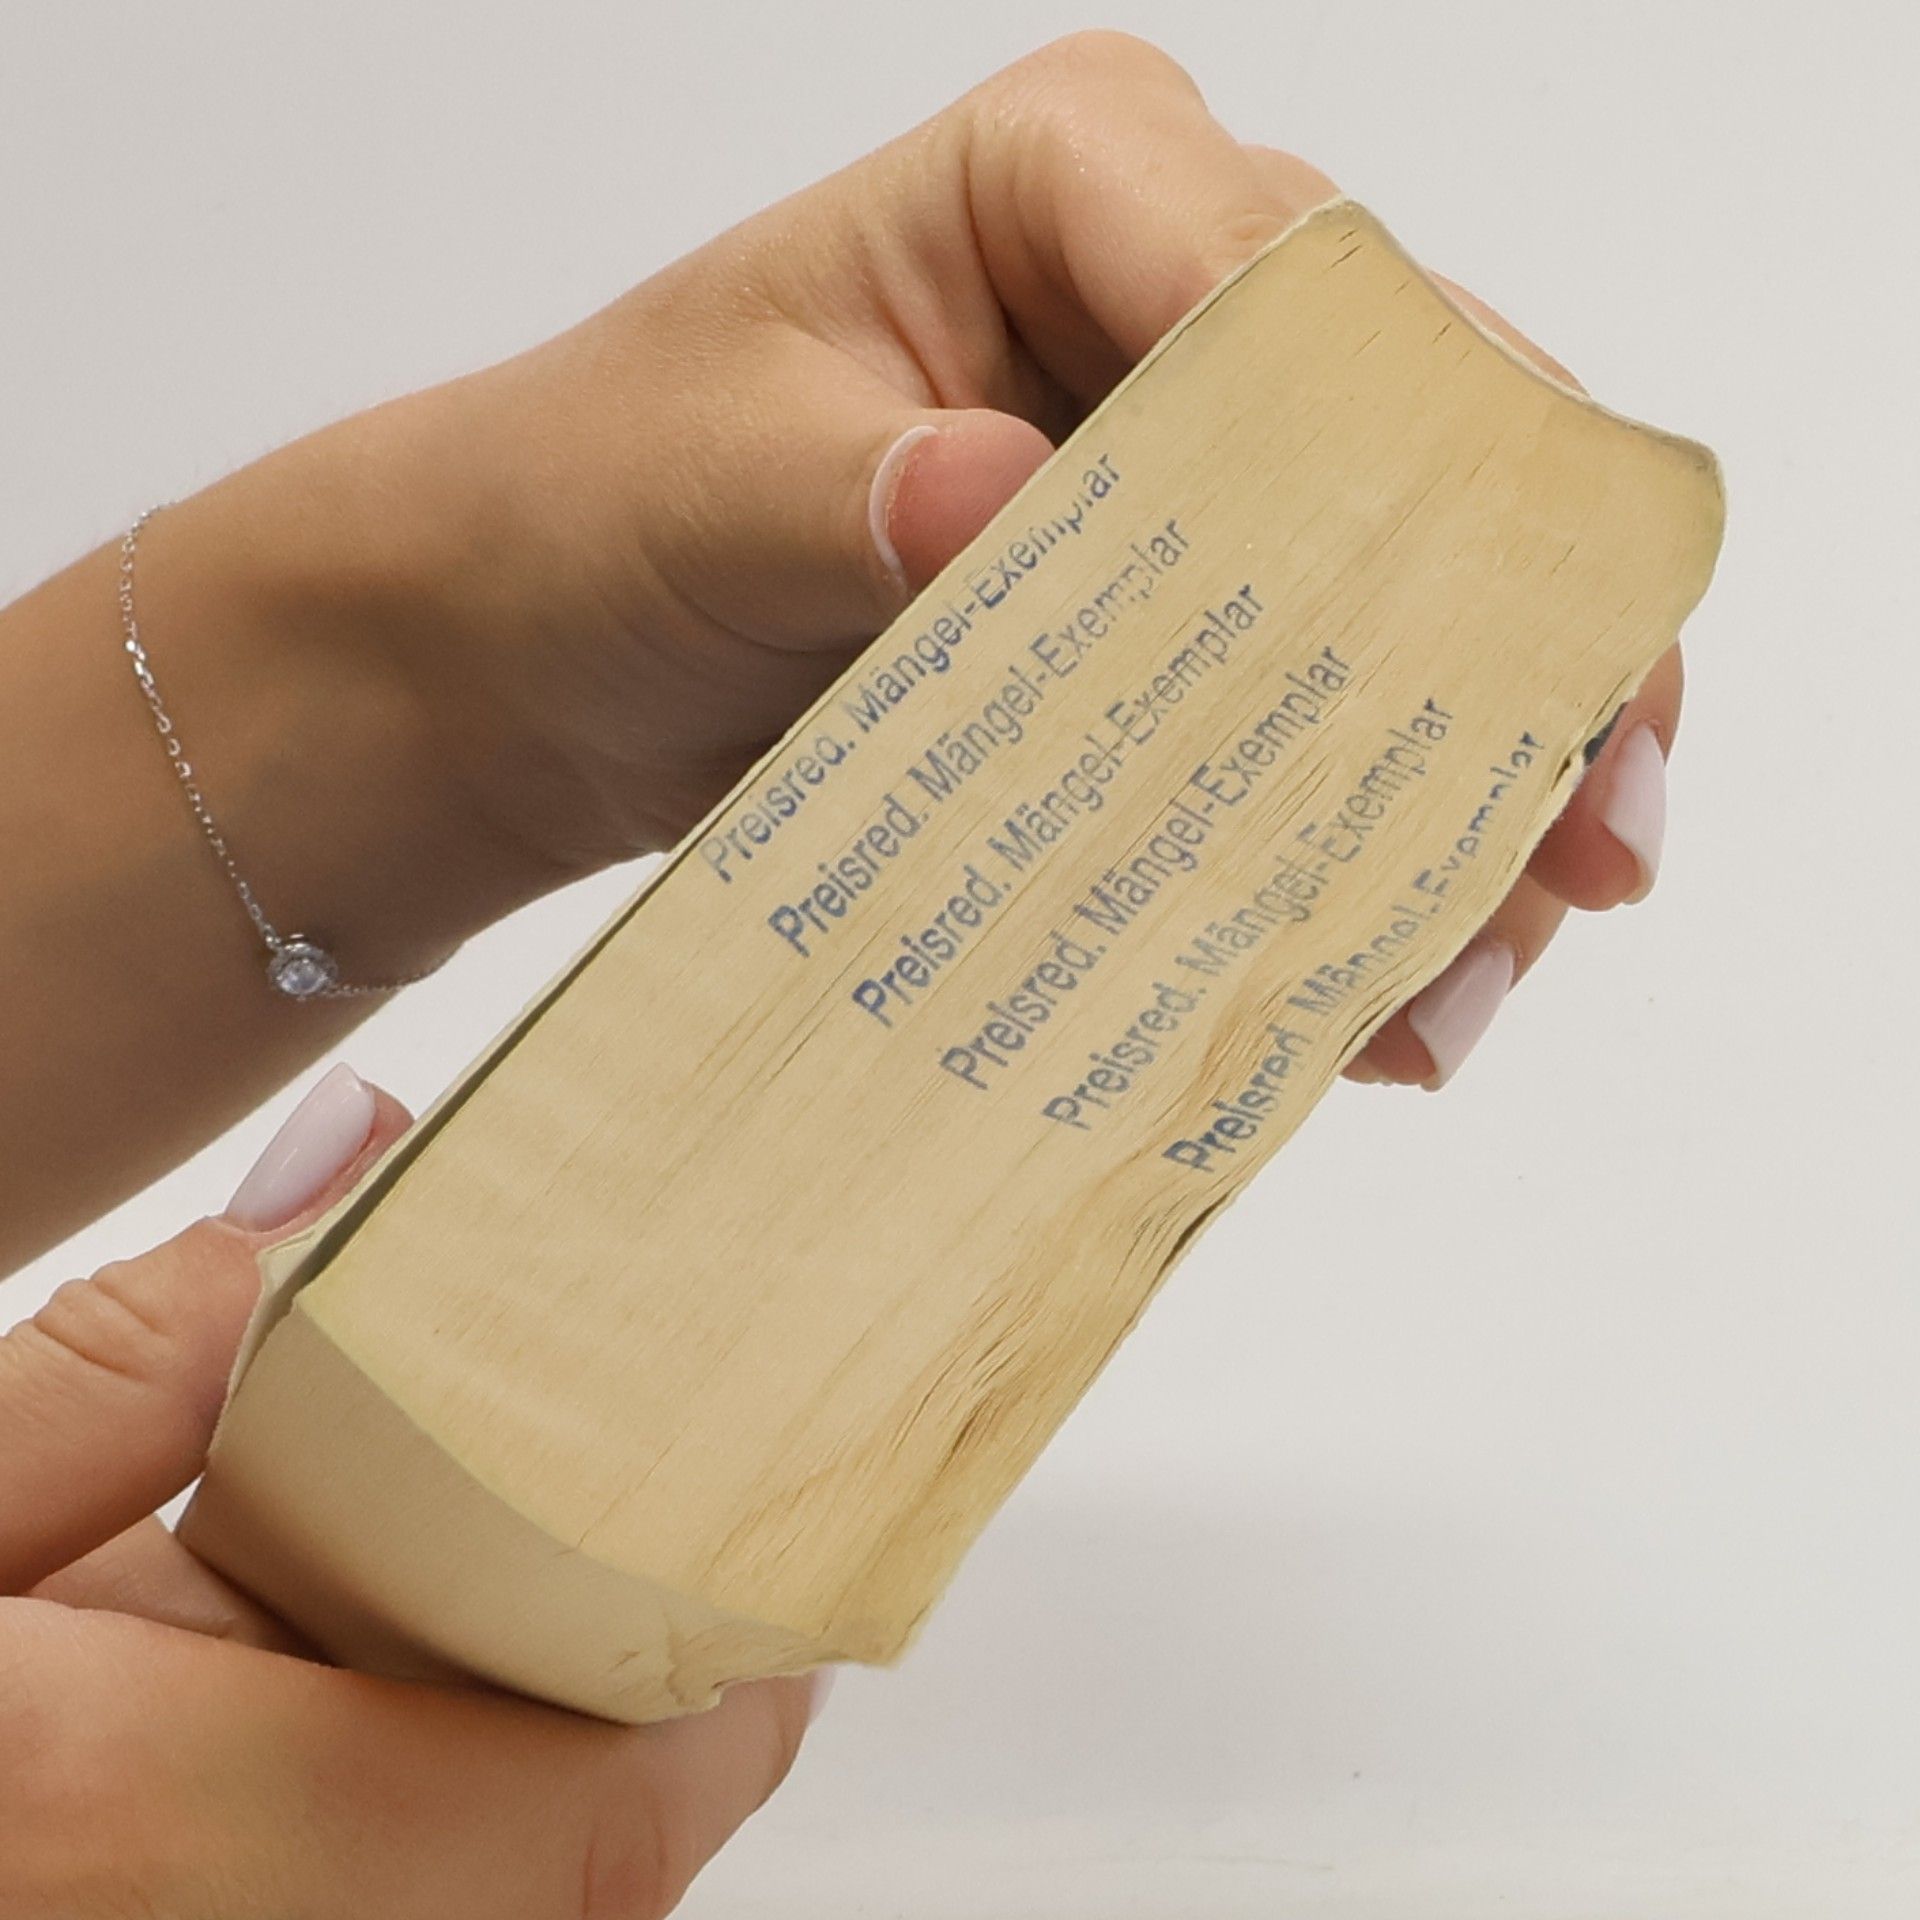 Preisred. Mängel-Exemplar
Preisred. Mängel-Exemplar
Preisred. Mängel-Exemplar
Preisred. Mängel-Exemplar
Preisred. Mängel-Exemplar
Preisred. Mängel-Exemplar